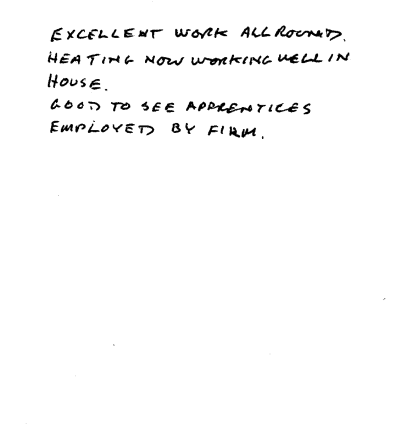 EXCELLENT WORK ALL ROUND.
HEATING NOW WORKING WELL IN
HOUSE.
GOOD TO SEE APPRENTICES
EMPLOYED BY FIRM.